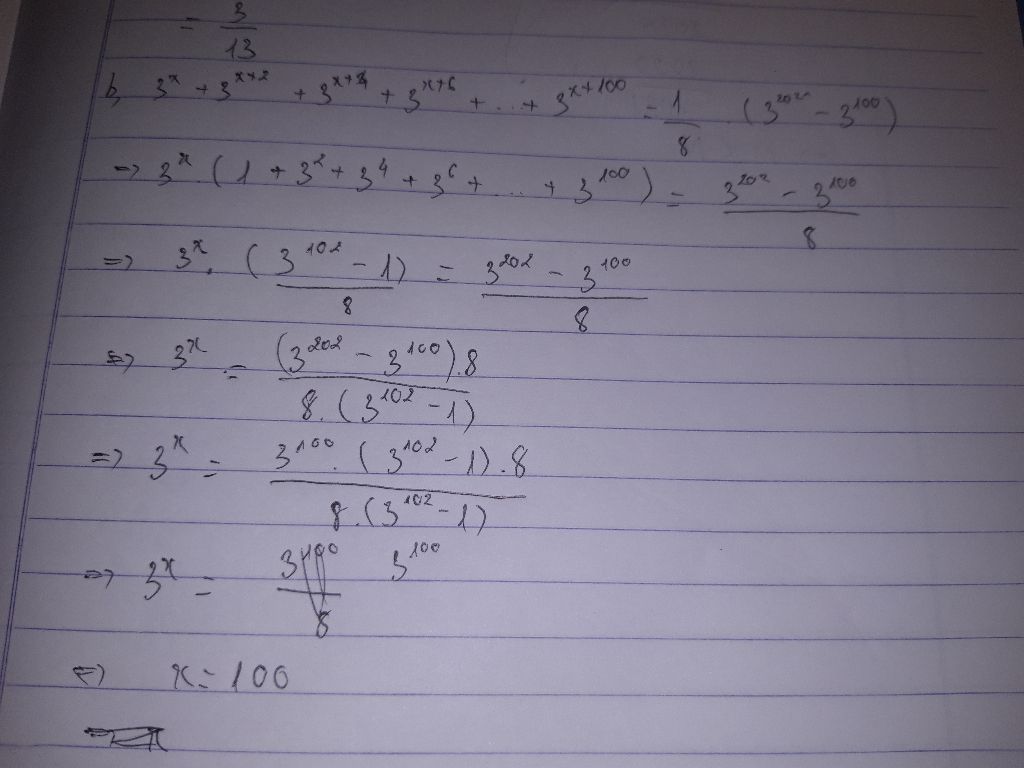 = 3/13
b, 3^x + 3^{x+2} + 3^{x+4} + 3^{x+6} + ... + 3^{x+100} = 1/8 . (3^{202} - 3^{100})
=> 3^x . (1 + 3^2 + 3^4 + 3^6 + ... + 3^{100}) = (3^{202} - 3^{100})/8
=> 3^x . (3^{102} - 1)/8 = (3^{202} - 3^{100})/8
=> 3^x = (3^{202} - 3^{100}).8 / 8.(3^{102} - 1)
=> 3^x = 3^{100}.(3^{102} - 1).8 / 8.(3^{102} - 1)
=> 3^x = 3^{100}
=> x = 100